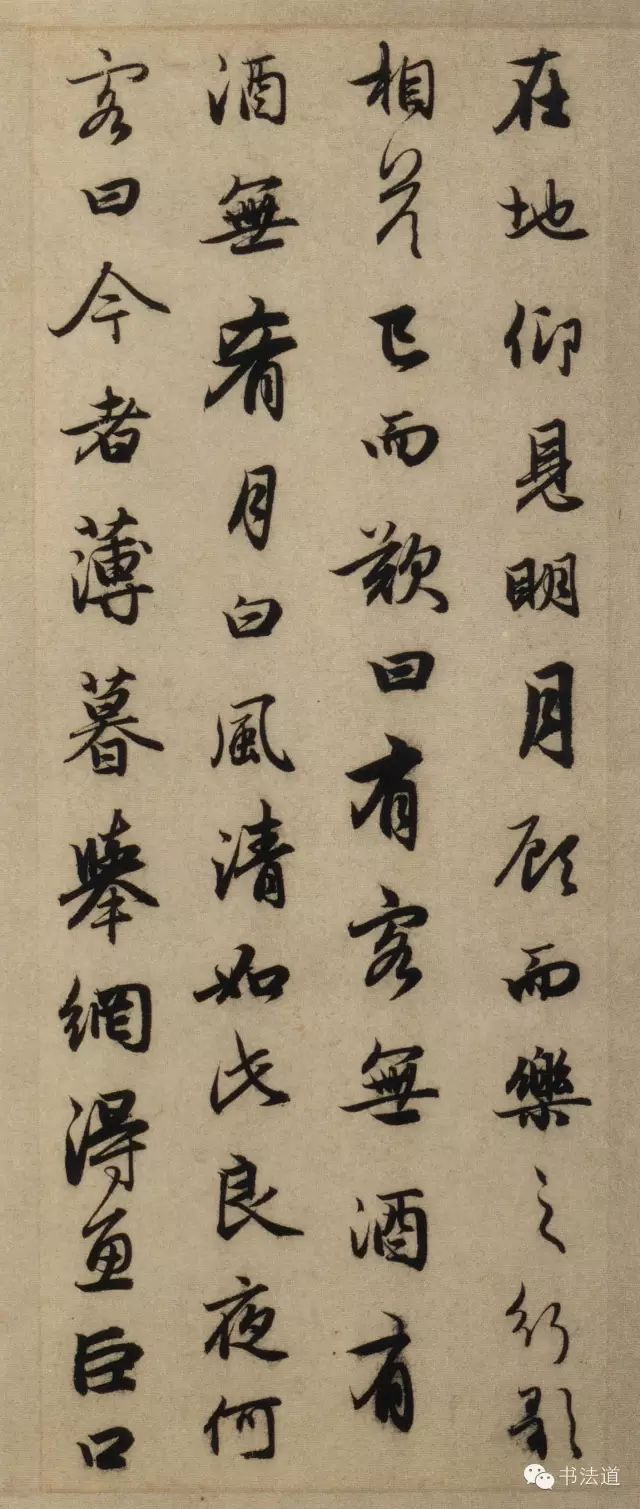 在地仰見明月顧而樂之行歌
相答已而歎曰有客無酒有
酒無肴月白風清如此良夜何
客曰今者薄暮舉網得魚巨口
书法道